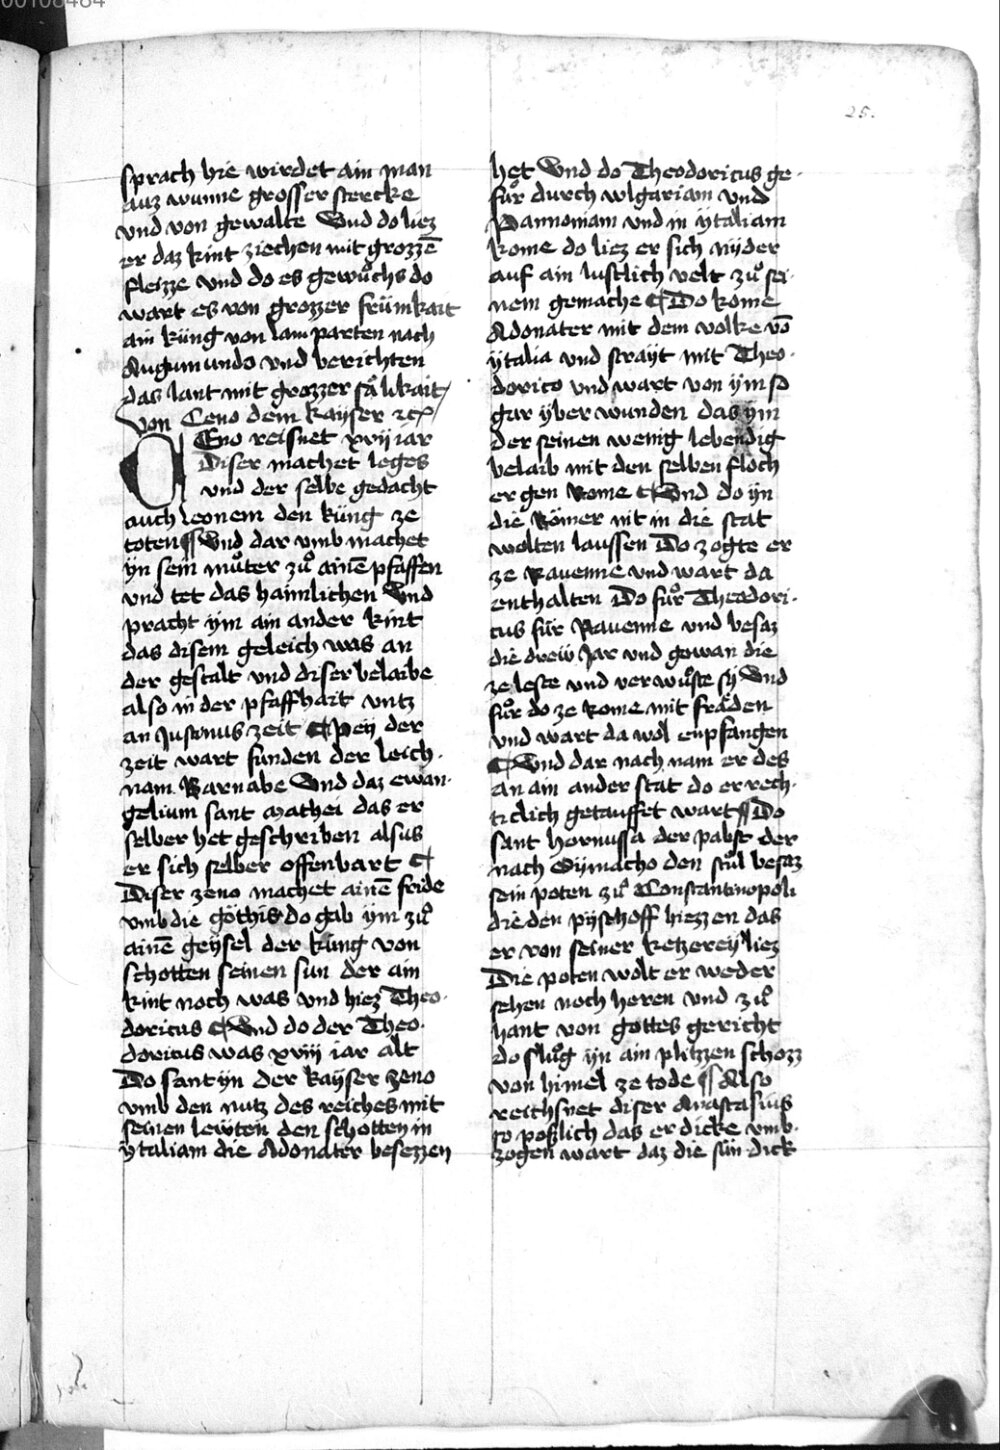 00108484
25.
sprach hie wirdet ain man
auz wunne grosser stercke
vnd von gewalte Vnd do liez
er daz kint ziechen mit grozzē
fleizze vnd do es gewůchs do
wart es von grozzer frümkait
ain küng von lamparten nach
Augumundo vnd berichten
das lant mit grozzer sålikait
von Ceno dem kayser ⁊c̄
Eno reisnet xvij iar
Diser machet leges
vnd der selbe gedacht
auch leonem den küng ze
toten ¶ Vnd dar vmb machet
yn sein můter zů ainē pfaffen
vnd tet das haimlichen Vnd
pracht ym ain ander kint
das disem geleich was an
der gestalt vnd diser belaibe
also in der pfaffhait vntz
an Justinus zeit ¶ Pey der
zeit wart funden der leich-
nam Barnabe Vnd daz ewan-
gelium sant Mathei das er
selber het geschriben alsus
er sich selber offenbart ¶
Diser zeno machet ainē fride
vmb die göthis do gab ym zů
ainē geysel der küng von
schotten seinen sun der ain
kint noch was vnd hiez Theo-
doricus ¶ Vnd do der Theo-
doricus was xviij iar alt
Do sant yn der kayser zeno
vmb den nutz des reiches mit
seinen lewten den schotten in
ytaliam die Adonater besezzen
het Vnd do Theodoricus ge-
fůr durch wlgariam vnd
Pannoniam vnd in ytaliam
kome do liez er sich nyder
auf ain lustlich velt zů sei-
nem gemache ¶ Do kome
Adonater mit dem volke vō
ytalia vnd strayt mit Theo-
dorico vnd wart von ym so
gar yber wunden das ym
der seinen wenig lebendig
belaib mit den selben floch
er gen Rome ¶ Vnd do yn
die Römer nit in die stat
wolten laussen Do zogte er
ze Rauenne vnd wart da
enthalten Do fůr Theodori-
cus für Rauenne vnd besaz
die drew Jar vnd gewan die
ze leste vnd verwůste sy Vnd
fůr do ze Rome mit fräden
vnd wart da wol enpfangen
¶ Vnd dar nach nam er des
an ain ander stat do er rech-
ticlich getauffet wart ¶ Do
sant hormissa der pabst der
nach Symacho den stůl besaz
sein poten zů Constantinopoli
die den pyschoff hiezzen das
er von seiner ketzerey liez
Die poten wolt er weder
sehen noch horen vnd zů
hant von gottes gericht
do slůg yn ain plitzzen schozz
von himel ze tode ¶ Also
reichsnet diser Anastasius
so poßlich das er dicke vmb-
zogen wart daz die sün dick